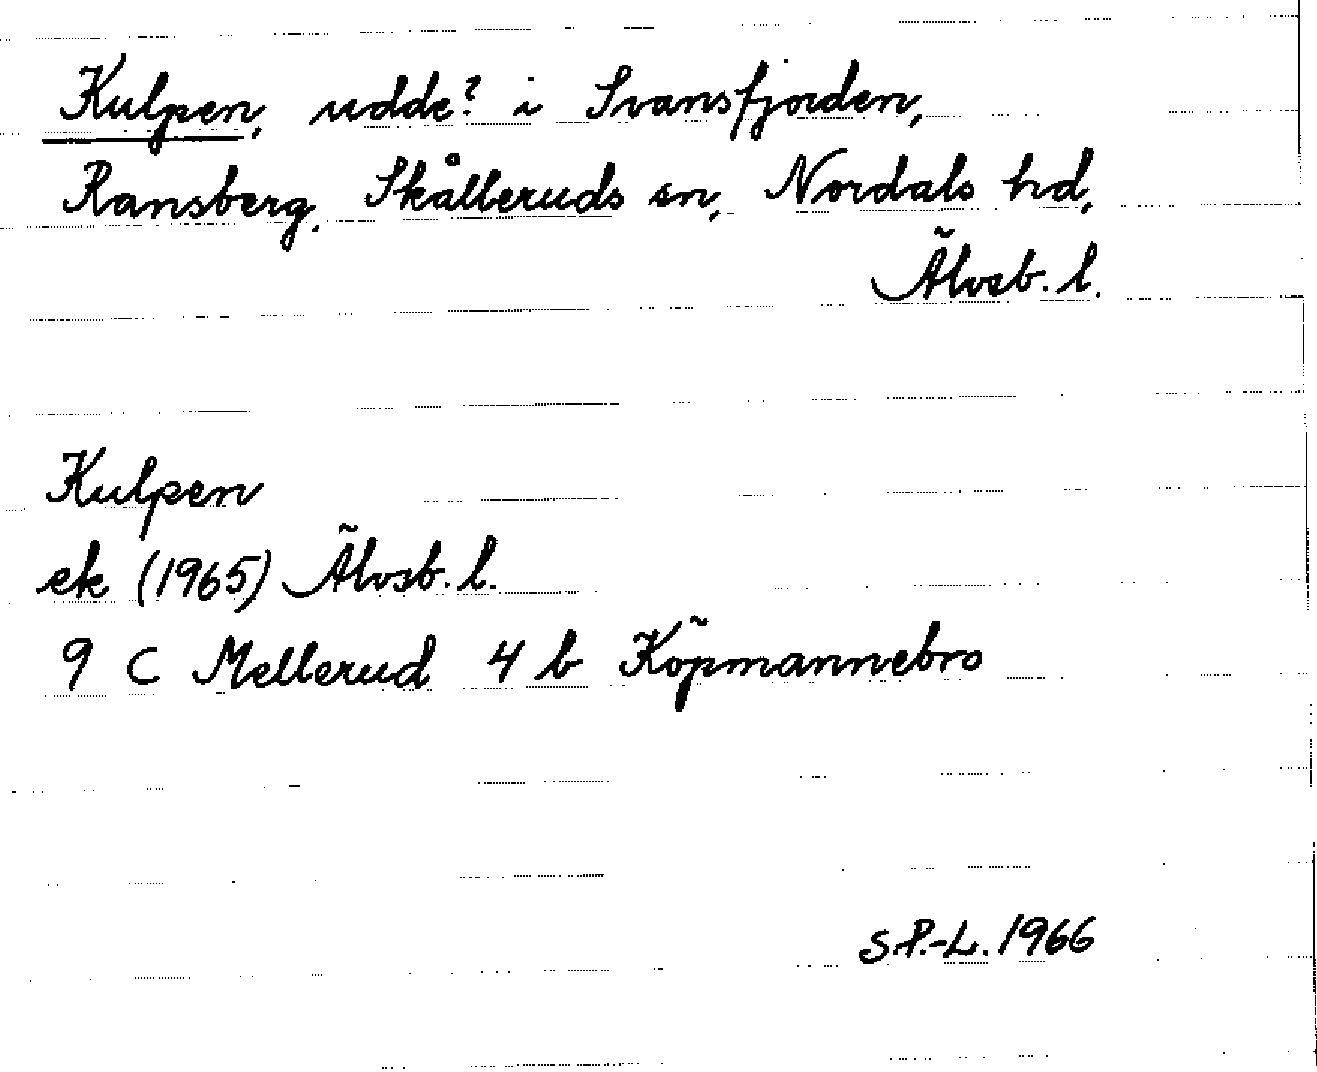 Kulpen, udde? i Svansfjorden,
Ransberg, Skålleruds sn, Nordals hd,
Älvsb. l.
Kulpen
ek (1965) Älvsb. l.
9 C Mellerud 4 b Köpmannebro
S.P.-L. 1966